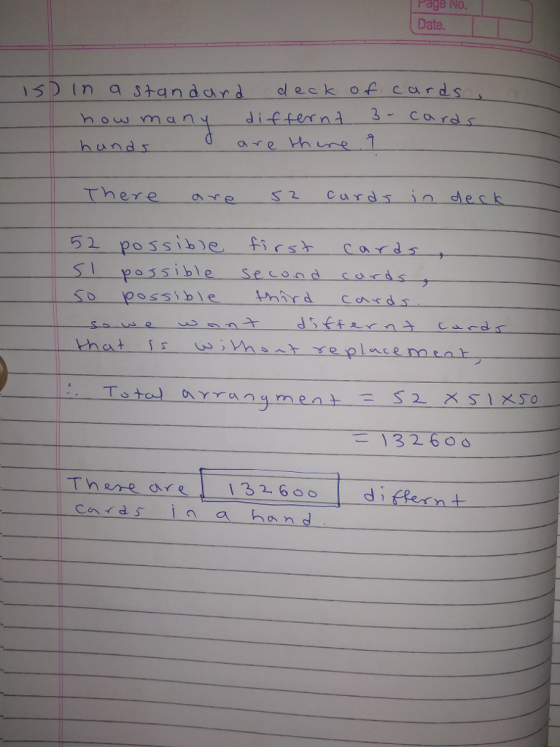 Page No.
Date.
15) In a standard deck of cards,
how many differnt 3-cards
hands are there ?
There are 52 cards in deck
52 possible first cards,
51 possible second cards,
50 possible third cards.
so we want differnt cards
that is without replacement,
∴ Total arrangment = 52 × 51 × 50
= 132600
There are 132600 differnt
cards in a hand.